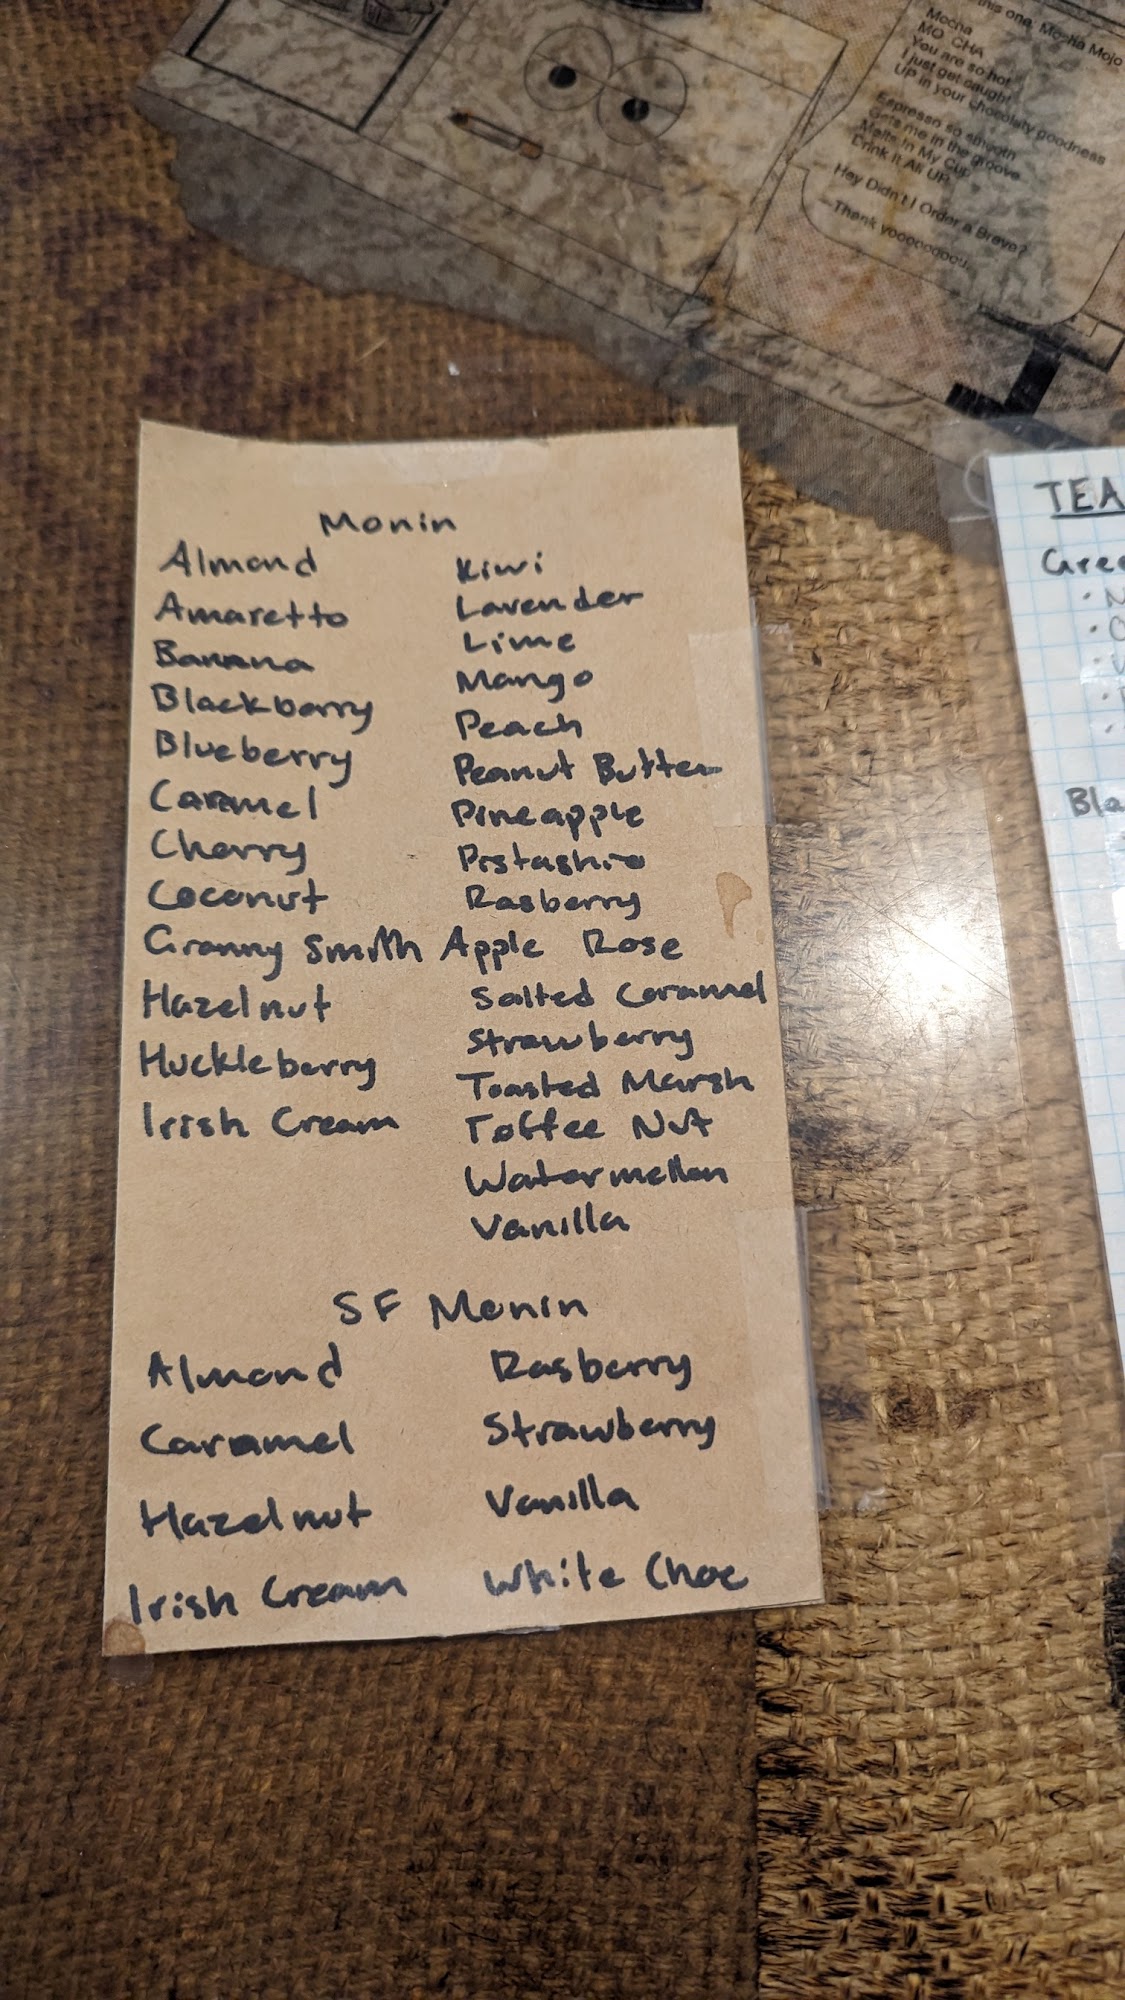 this one, Mocha Mojo
Mocha
MO CHA
You are so hot
I just get caught
UP in your chocolaty goodness
Espresso so smooth
Gets me in the groove
Melts In My Cup
Drink It All UP
Hey Didn't I Order a Breve?
Thank yooooooou.
Monin
Almond
Amaretto
Banana
Blackberry
Blueberry
Caramel
Cherry
Coconut
Granny Smith Apple
Hazelnut
Huckleberry
Irish Cream
Kiwi
Lavender
Lime
Mango
Peach
Peanut Butter
Pineapple
Pistashio
Rasberry
Rose
Salted Caramel
Strawberry
Toasted Marsh
Toffee Nut
Watermellon
Vanilla
SF Monin
Almond
Caramel
Hazelnut
Irish Cream
Rasberry
Strawberry
Vanilla
White Choc
TEA
Gree
Bla